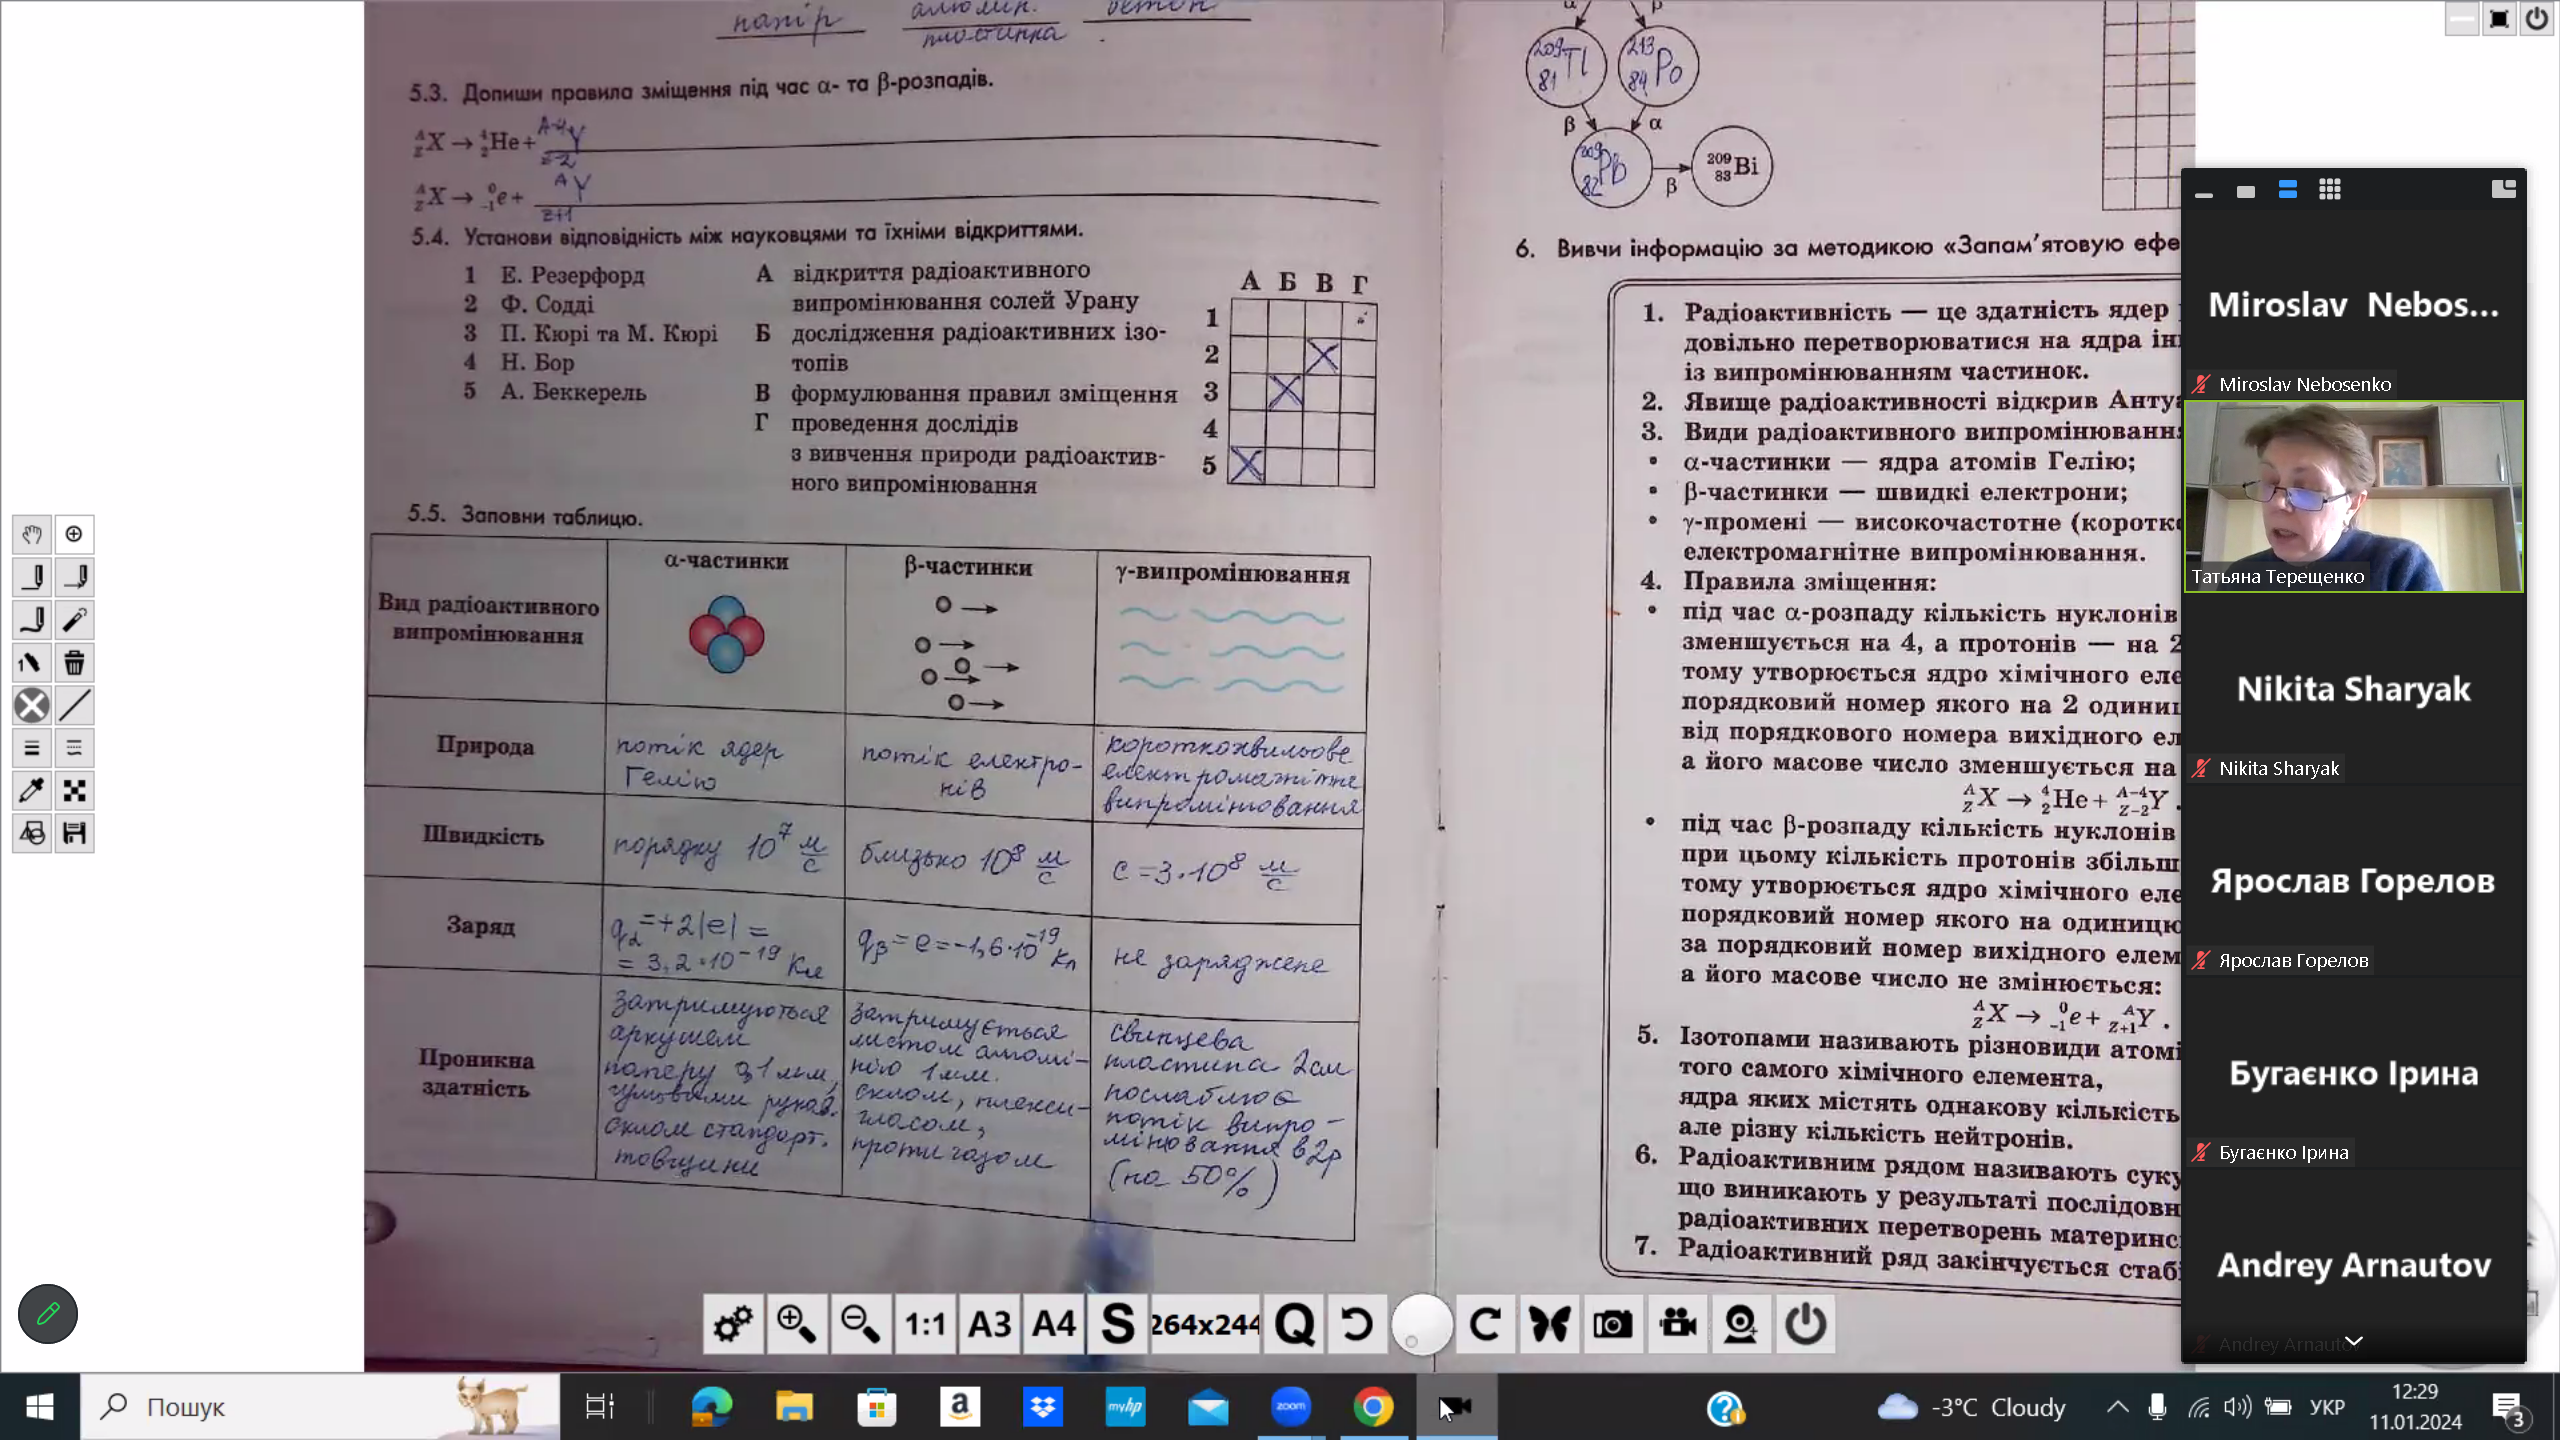 папір алюмін. бетон
пластинка
5.3. Допиши правила зміщення під час α- та β-розпадів.
ᴬ_Z X → ⁴₂He + ᴬ⁻⁴_Z-2 Y
ᴬ_Z X → ⁰₋₁e + ᴬ_Z+1 Y
5.4. Установи відповідність між науковцями та їхніми відкриттями.
1 Е. Резерфорд
2 Ф. Содді
3 П. Кюрі та М. Кюрі
4 Н. Бор
5 А. Беккерель
А відкриття радіоактивного
випромінювання солей Урану
Б дослідження радіоактивних ізо-
топів
В формулювання правил зміщення
Г проведення дослідів
з вивчення природи радіоактив-
ного випромінювання
А Б В Г
1
2 X
3 X
4
5 X
5.5. Заповни таблицю.
Вид радіоактивного
випромінювання
α-частинки
β-частинки
γ-випромінювання
Природа
потік ядер
Гелію
потік електро-
нів
короткохвильове
електромагнітне
випромінювання
Швидкість
порядку 10⁷ м/с
близько 10⁸ м/с
c = 3·10⁸ м/с
Заряд
qα = +2|e| =
= 3,2·10⁻¹⁹ Кл
qβ = e = -1,6·10⁻¹⁹ Кл
не заряджене
Проникна
здатність
Затримуються
аркушем
паперу 0,1 мм,
гумовими рукав.
склом стандарт.
товщини
затримується
листом алюмі-
нію 1 мм.
склом, плекси-
гласом,
протигазом
свинцева
пластина 2см
послаблює
потік випро-
мінювання в 2р
(на 50%)
α β
²⁰⁹₈₁Tl ²¹³₈₄Po
β α
²⁰⁹₈₂Pb β ²⁰⁹₈₃Bi
6. Вивчи інформацію за методикою «Запам'ятовую ефе
1. Радіоактивність — це здатність ядер
довільно перетворюватися на ядра ін
із випромінюванням частинок.
2. Явище радіоактивності відкрив Анту
3. Види радіоактивного випромінюванн
• α-частинки — ядра атомів Гелію;
• β-частинки — швидкі електрони;
• γ-промені — високочастотне (коротк
електромагнітне випромінювання.
4. Правила зміщення:
• під час α-розпаду кількість нуклонів
зменшується на 4, а протонів — на 2
тому утворюється ядро хімічного еле
порядковий номер якого на 2 одиниц
від порядкового номера вихідного ел
а його масове число зменшується на
ᴬ_Z X → ⁴₂He + ᴬ⁻⁴_Z-2 Y.
• під час β-розпаду кількість нуклонів
при цьому кількість протонів збільш
тому утворюється ядро хімічного еле
порядковий номер якого на одиницю
за порядковий номер вихідного елем
а його масове число не змінюється:
ᴬ_Z X → ⁰₋₁e + ᴬ_Z+1 Y.
5. Ізотопами називають різновиди атомі
того самого хімічного елемента,
ядра яких містять однакову кількість
але різну кількість нейтронів.
6. Радіоактивним рядом називають суку
що виникають у результаті послідовн
радіоактивних перетворень материнс
7. Радіоактивний ряд закінчується стабі
Miroslav Nebos...
Miroslav Nebosenko
Татьяна Терещенко
Nikita Sharyak
Nikita Sharyak
Ярослав Горелов
Ярослав Горелов
Бугаєнко Ірина
Бугаєнко Ірина
Andrey Arnautov
Andrey Arnautov
1:1 A3 A4 S 264x244 Q
Пошук
a
myhp
zoom
-3°C Cloudy
УКР
12:29
11.01.2024
3